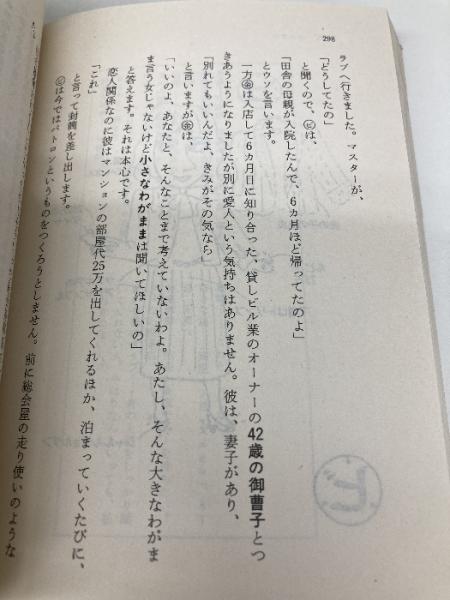 298
ラブへ行きました。マスターが、
「どうしてたの」
と聞くので、㋪は、
「田舎の母親が入院したんで、6ヵ月ほど帰ってたのよ」
とウソを言います。
一方㊎は入店して6ヵ月目に知り合った、貸しビル業のオーナーの42歳の御曹子とつ
きあうようになりましたが別に愛人という気持ちはありません。彼は、妻子があり、
「別れてもいいんだよ、きみがその気なら」
と言いますが㊎は、
「いいのよ、あなたと、そんなことまで考えていないわよ。あたし、そんな大きなわがま
ま言う女じゃないけど小さなわがままは聞いてほしいの」
と答えます。それは本心です。
恋人関係なのに彼はマンションの部屋代25万を出してくれるほか、泊まっていくたびに、
「これ」
と言って封筒を差し出します。
は今ではパトロンというものをつくろうとしません。前に総会屋の走り使いのような